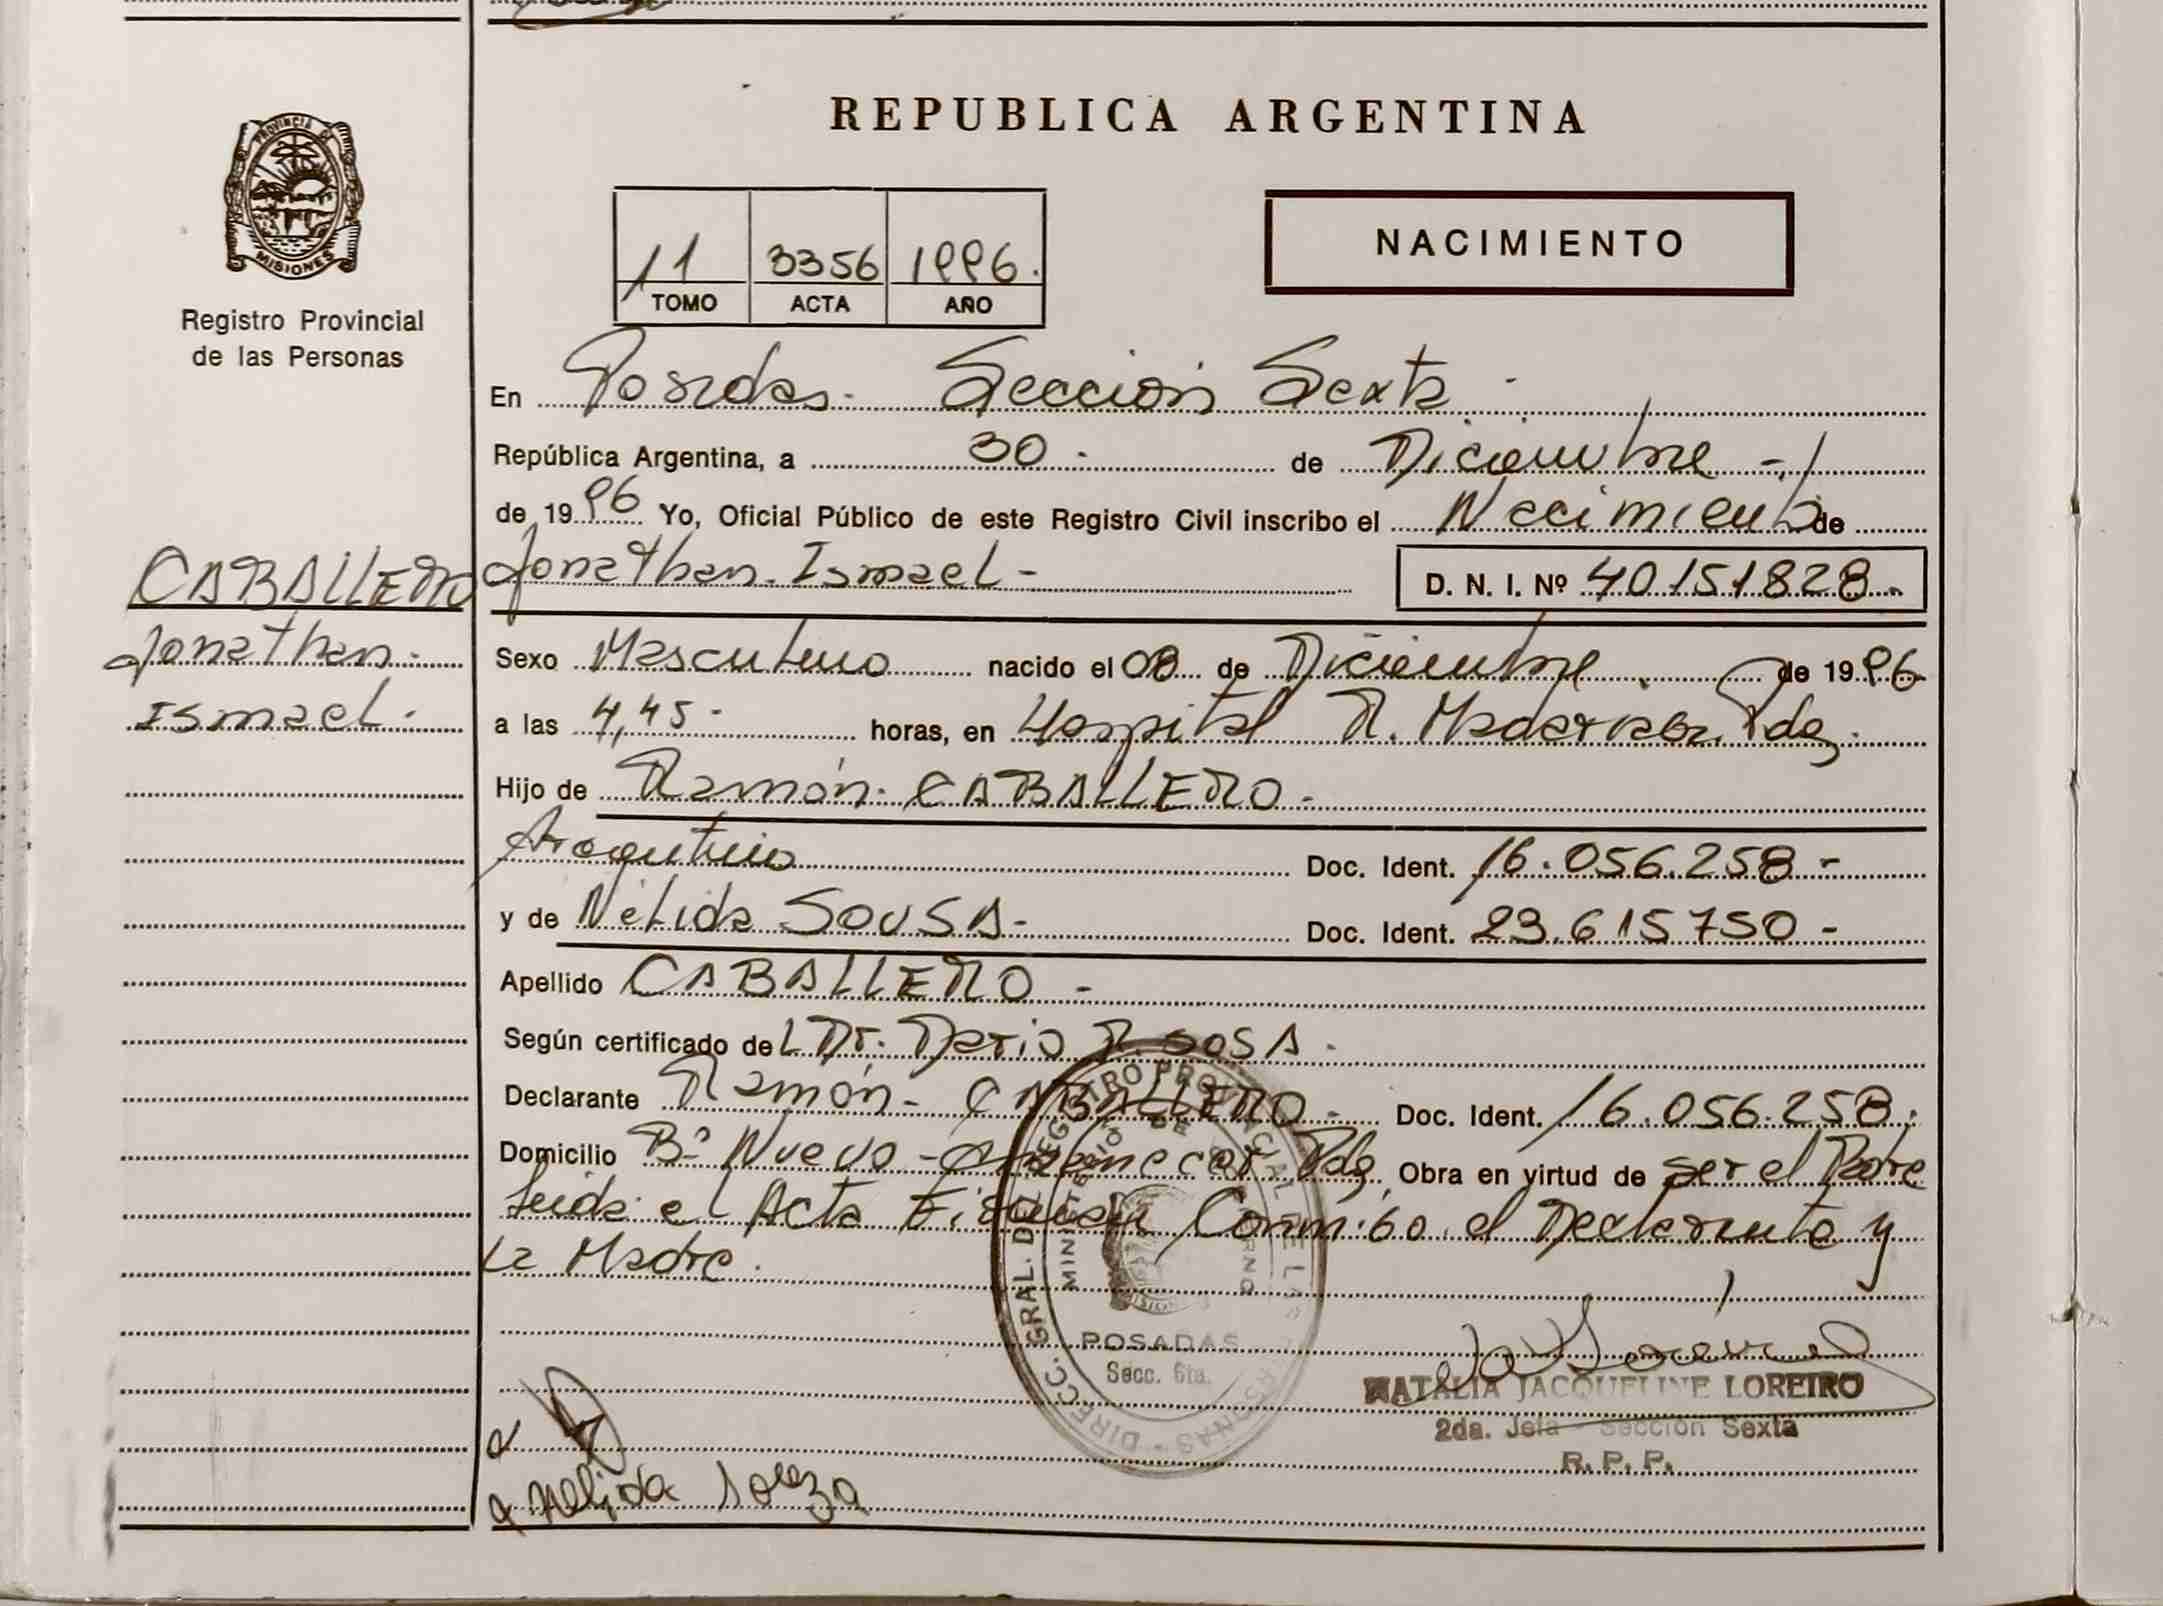 REPUBLICA ARGENTINA
PROVINCIA DE
MISIONES
Registro Provincial
de las Personas
11 3356 1996.
TOMO ACTA AÑO
NACIMIENTO
En Posadas. Sección Sexta
República Argentina, a 30 de Diciembre
de 1996 Yo, Oficial Público de este Registro Civil inscribo el Nacimiento de
CABALLERO
Jonathan. Ismael
D. N. I. Nº 40151828
Jonathan.
Ismael.
Sexo Masculino nacido el 08 de Diciembre de 1996
a las 4,45 horas, en Hospital R. Madariaga. Pdas.
Hijo de Ramón. CABALLERO.
Argentino Doc. Ident. 16.056.258
y de Nélida SOUSA Doc. Ident. 23.615750
Apellido CABALLERO
Según certificado del Dr. Dario R. SOSA
Declarante Ramón. CABALLERO Doc. Ident. 16.056.258.
Domicilio Bº Nuevo Pdas. Obra en virtud de ser el Padre
Leida el Acta Firman Conmigo. el Declarante y
La Madre.
DIRECC. GRAL. DEL REGISTRO PROVINCIAL DE LAS PERSONAS
MINISTERIO DE GOBIERNO
POSADAS
Secc. 6ta.
NATALIA JACQUELINE LOREIRO
2da. Jefa - Sección Sexta
R. P. P.
Nelida Souza